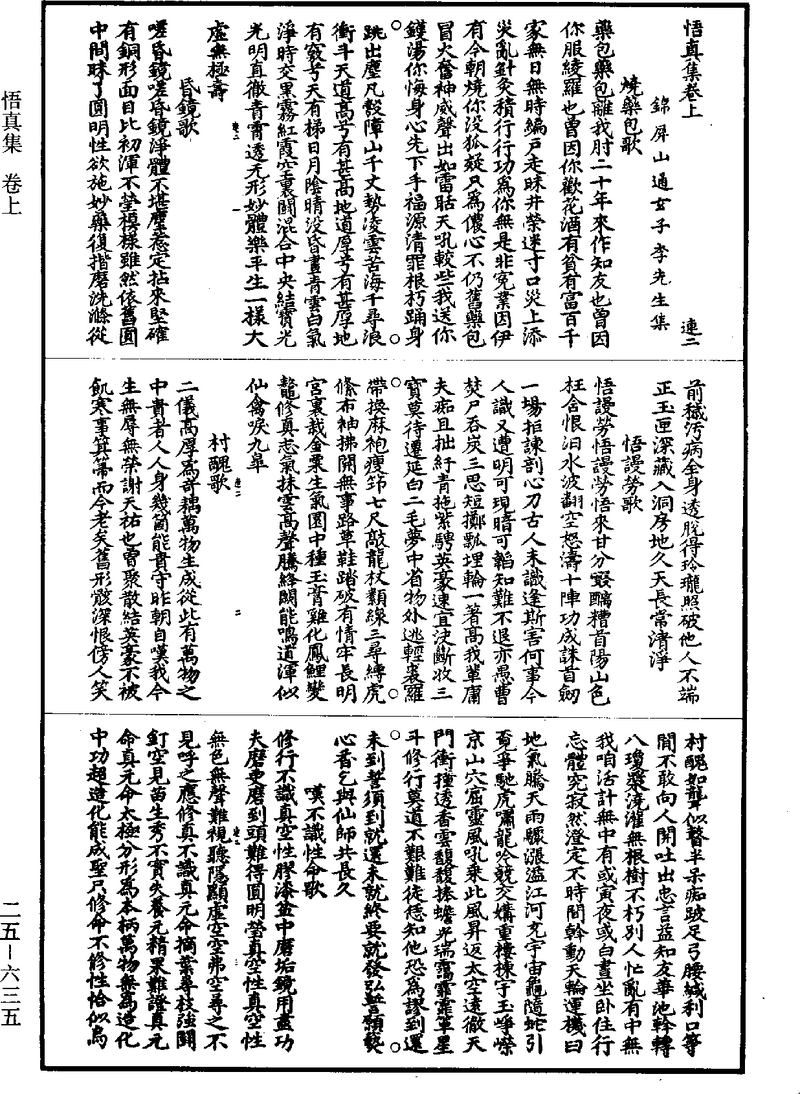 悟真集卷上
錦屏山通玄子李先生集　連二
燒藥包歌
藥包藥包離我肘二十年來作知友也曾因
你服綾羅也曾因你歡花酒有貧有富百千
家無日無時鞭戶走昧井榮迷寸口災上添
災亂針灸積行行功爲你無是非冤業因伊
有今朝燒你没狐疑只爲儂心不仍舊藥包
冒火奮神威聲出如雷聒天吼較些我送你
鑊湯你悔身心先下手福源清罪根朽踊身
跳出塵凡彀障山千丈勢凌雲苦海千尋浪
衝斗天道高兮有甚高地道厚兮有甚厚地
有竅兮天有梯日月陰晴没昏晝青雲白氣
淨時交黑霧紅霞空裏鬬混合中央結寶光
光明直徹青霄透无形妙體樂平生一樣大
虛無極壽
昏鏡歌
嗟昏鏡嗟昏鏡淨體不堪塵惹定拈來堅確
有銅形面目比初渾不瑩模樣雖然依舊圓
中間昧了圓明性欲施妙藥復揩磨洗滌從
前穢污病全身透脫得玲瓏照破他人不端
正玉匣深藏入洞房地久天長常清淨
悟謾勞歌
悟謾勞悟謾勞悟來甘分餟醨糟首陽山色
枉含恨汨水波翻空怒濤十陣功成誅首劒
一場拒諫剖心刀古人未識逢斯害何事今
人識又遭明可現暗可韜知難不退亦愚曹
焚尸吞炭三思短擲瓢埋輪一著高我輩庸
夫痴且拙紆青拖紫騁英豪速宜決斷收三
寶莫待遷延白二毛夢中省物外逃輕裘羅
帶換麻袍瘦笻七尺敲龍杖纇線三尋縛虎
絛布袖拂開無事路草鞋踏破有情牢長明
宮裏栽金粟生氣園中種玉膏雞化鳳鯉變
鼇修真志氣抹雲高聲騰絳闕能鳴道渾似
仙禽唳九皐
村醜歌
二儀高厚爲奇耦萬物生成從此有萬物之
中貴者人人身幾箇能貴守昨朝自嘆我今
生無辱無榮謝天祐也曾聚散結英豪不被
飢寒事箕箒而今老矣舊形骸深恨傍人笑
村醜如聾似瞽半呆痴跛足弓腰緘利口等
閒不敢向人開吐出忠言益知友華池幹轉
八瓊漿澆灌無根樹不朽別人忙亂有中無
我咱活計無中有或寅夜或白晝坐卧住行
忘體究寂然澄定不時間幹動天輪運機臼
地氣騰天雨驟漲溢江河充宇宙龜隨蛇引
竟爭馳虎嘯龍吟競交媾重樓棟宇玉崢嶸
京山穴窟靈風吼乘此風昇返太空遠徹天
門衝撞透香雲馥馥捧蟾光瑞靄霏霏罩星
斗修行莫道不艱難徒恁知他恐爲謬到還
未到誓須到就還未就終要就發弘誓願爇
心香乞與仙師共長久
嘆不識性命歌
修行不識真空性膠漆盆中磨垢鏡用盡功
夫磨更磨到頭難得圓明瑩真空性真空性
無色無聲難視聽陽顯虛空空弗空尋之不
見呼之應修真不識真元命摘葉尋枝強鬬
飣空見苗生秀不實失養元精果難證真元
命真元命太極分形爲本柄萬物無爲造化
中功超造化能成聖只修命不修性恰似爲
悟真集　卷上
二五—六三五